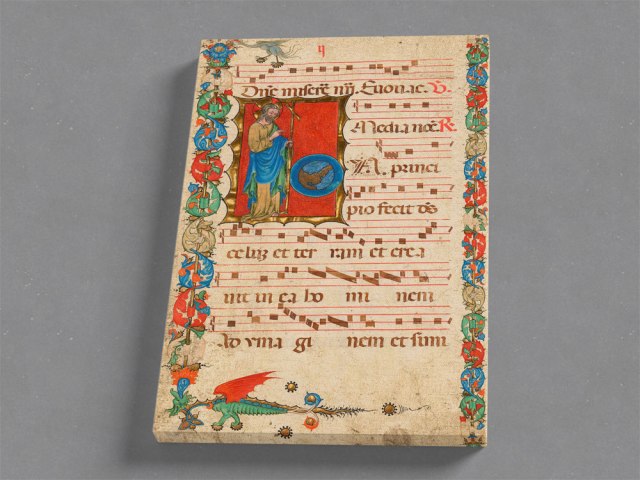 Dñe miserẽ nr̃j. Euouae. V̄.
Media noc̃e R.
IN princi
pio fecit ds̄
celuʒ et ter ram et crea
uit in ea ho mi nem
Ad yma gi nem et simi